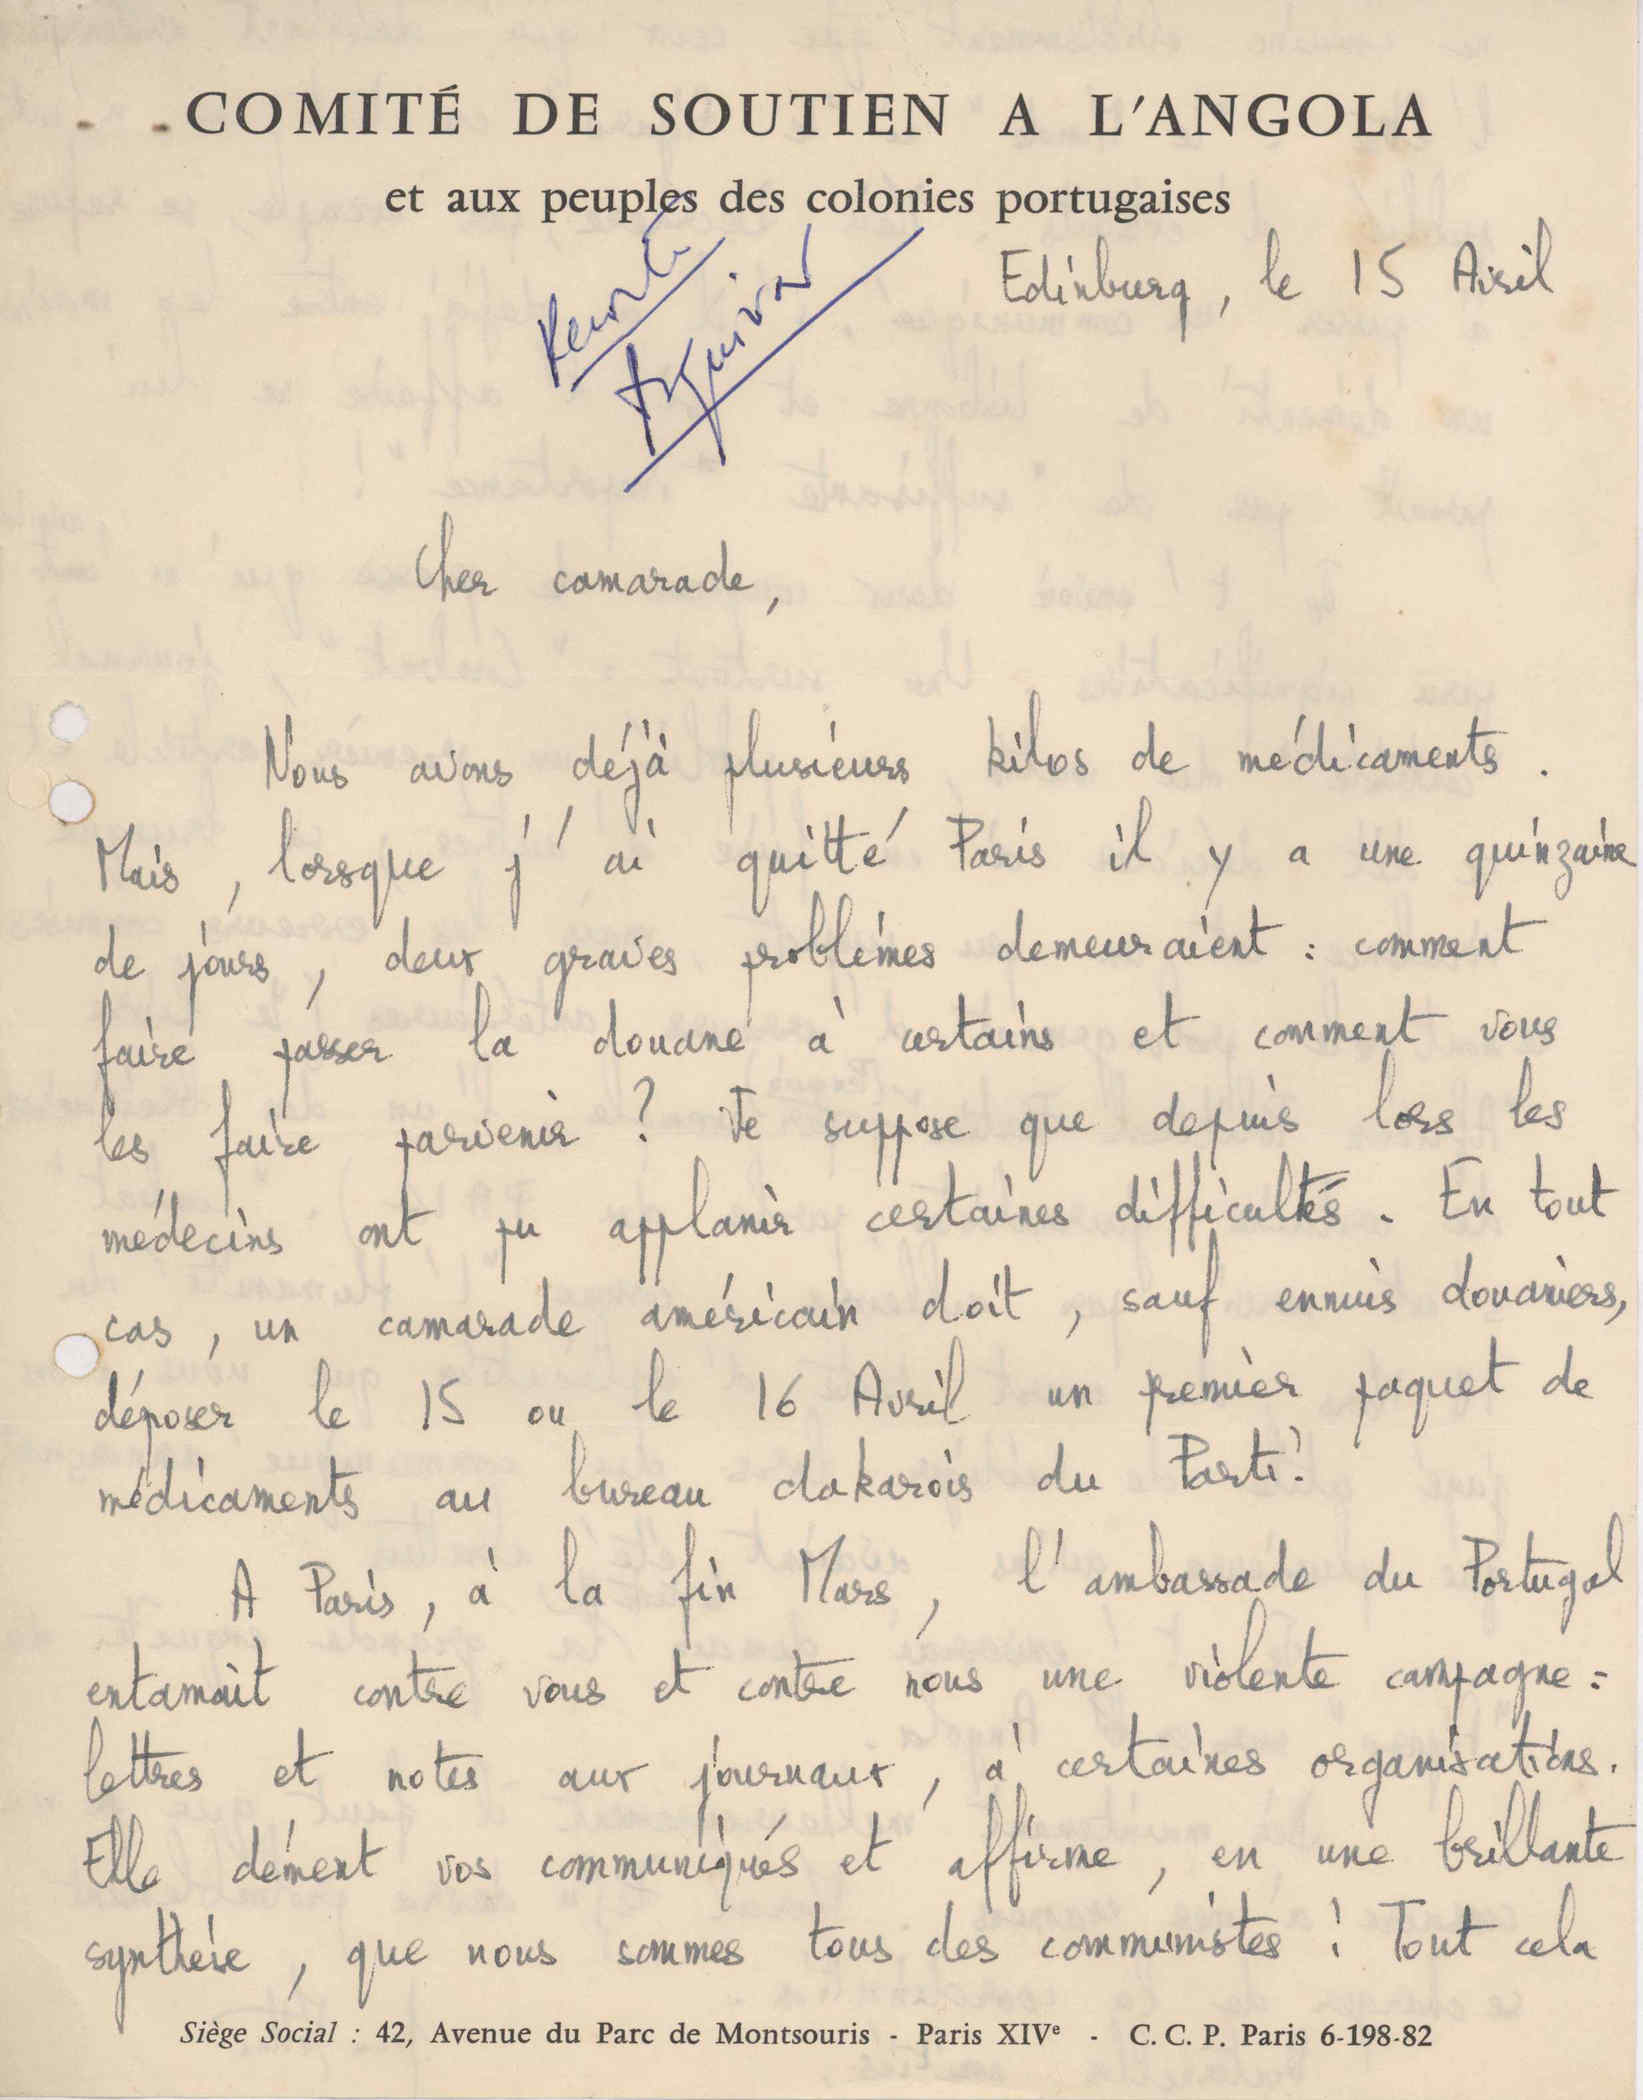 COMITÉ DE SOUTIEN A L'ANGOLA
et aux peuples des colonies portugaises
Edinburg, le 15 Avril
Arquivar
Cher camarade,
Nous avons déjà plusieurs kilos de médicaments.
Mais, lorsque j'ai quitté Paris il y a une quinzaine
de jours, deux graves problèmes demeuraient : comment
faire passer la douane à certains et comment vous
les faire parvenir ? Je suppose que depuis lors les
médecins ont pu applanir certaines difficultés. En tout
cas, un camarade américain doit, sauf ennuis douaniers,
déposer le 15 ou le 16 Avril un premier paquet de
médicaments au bureau dakarois du Parti.
A Paris, à la fin Mars, l'ambassade du Portugal
entamait contre vous et contre nous une violente campagne :
lettres et notes aux journaux, à certaines organisations.
Elle dément vos communiqués et affirme, en une brillante
synthèse, que nous sommes tous des communistes ! Tout cela
Siège Social : 42, Avenue du Parc de Montsouris - Paris XIVe - C. C. P. Paris 6-198-82